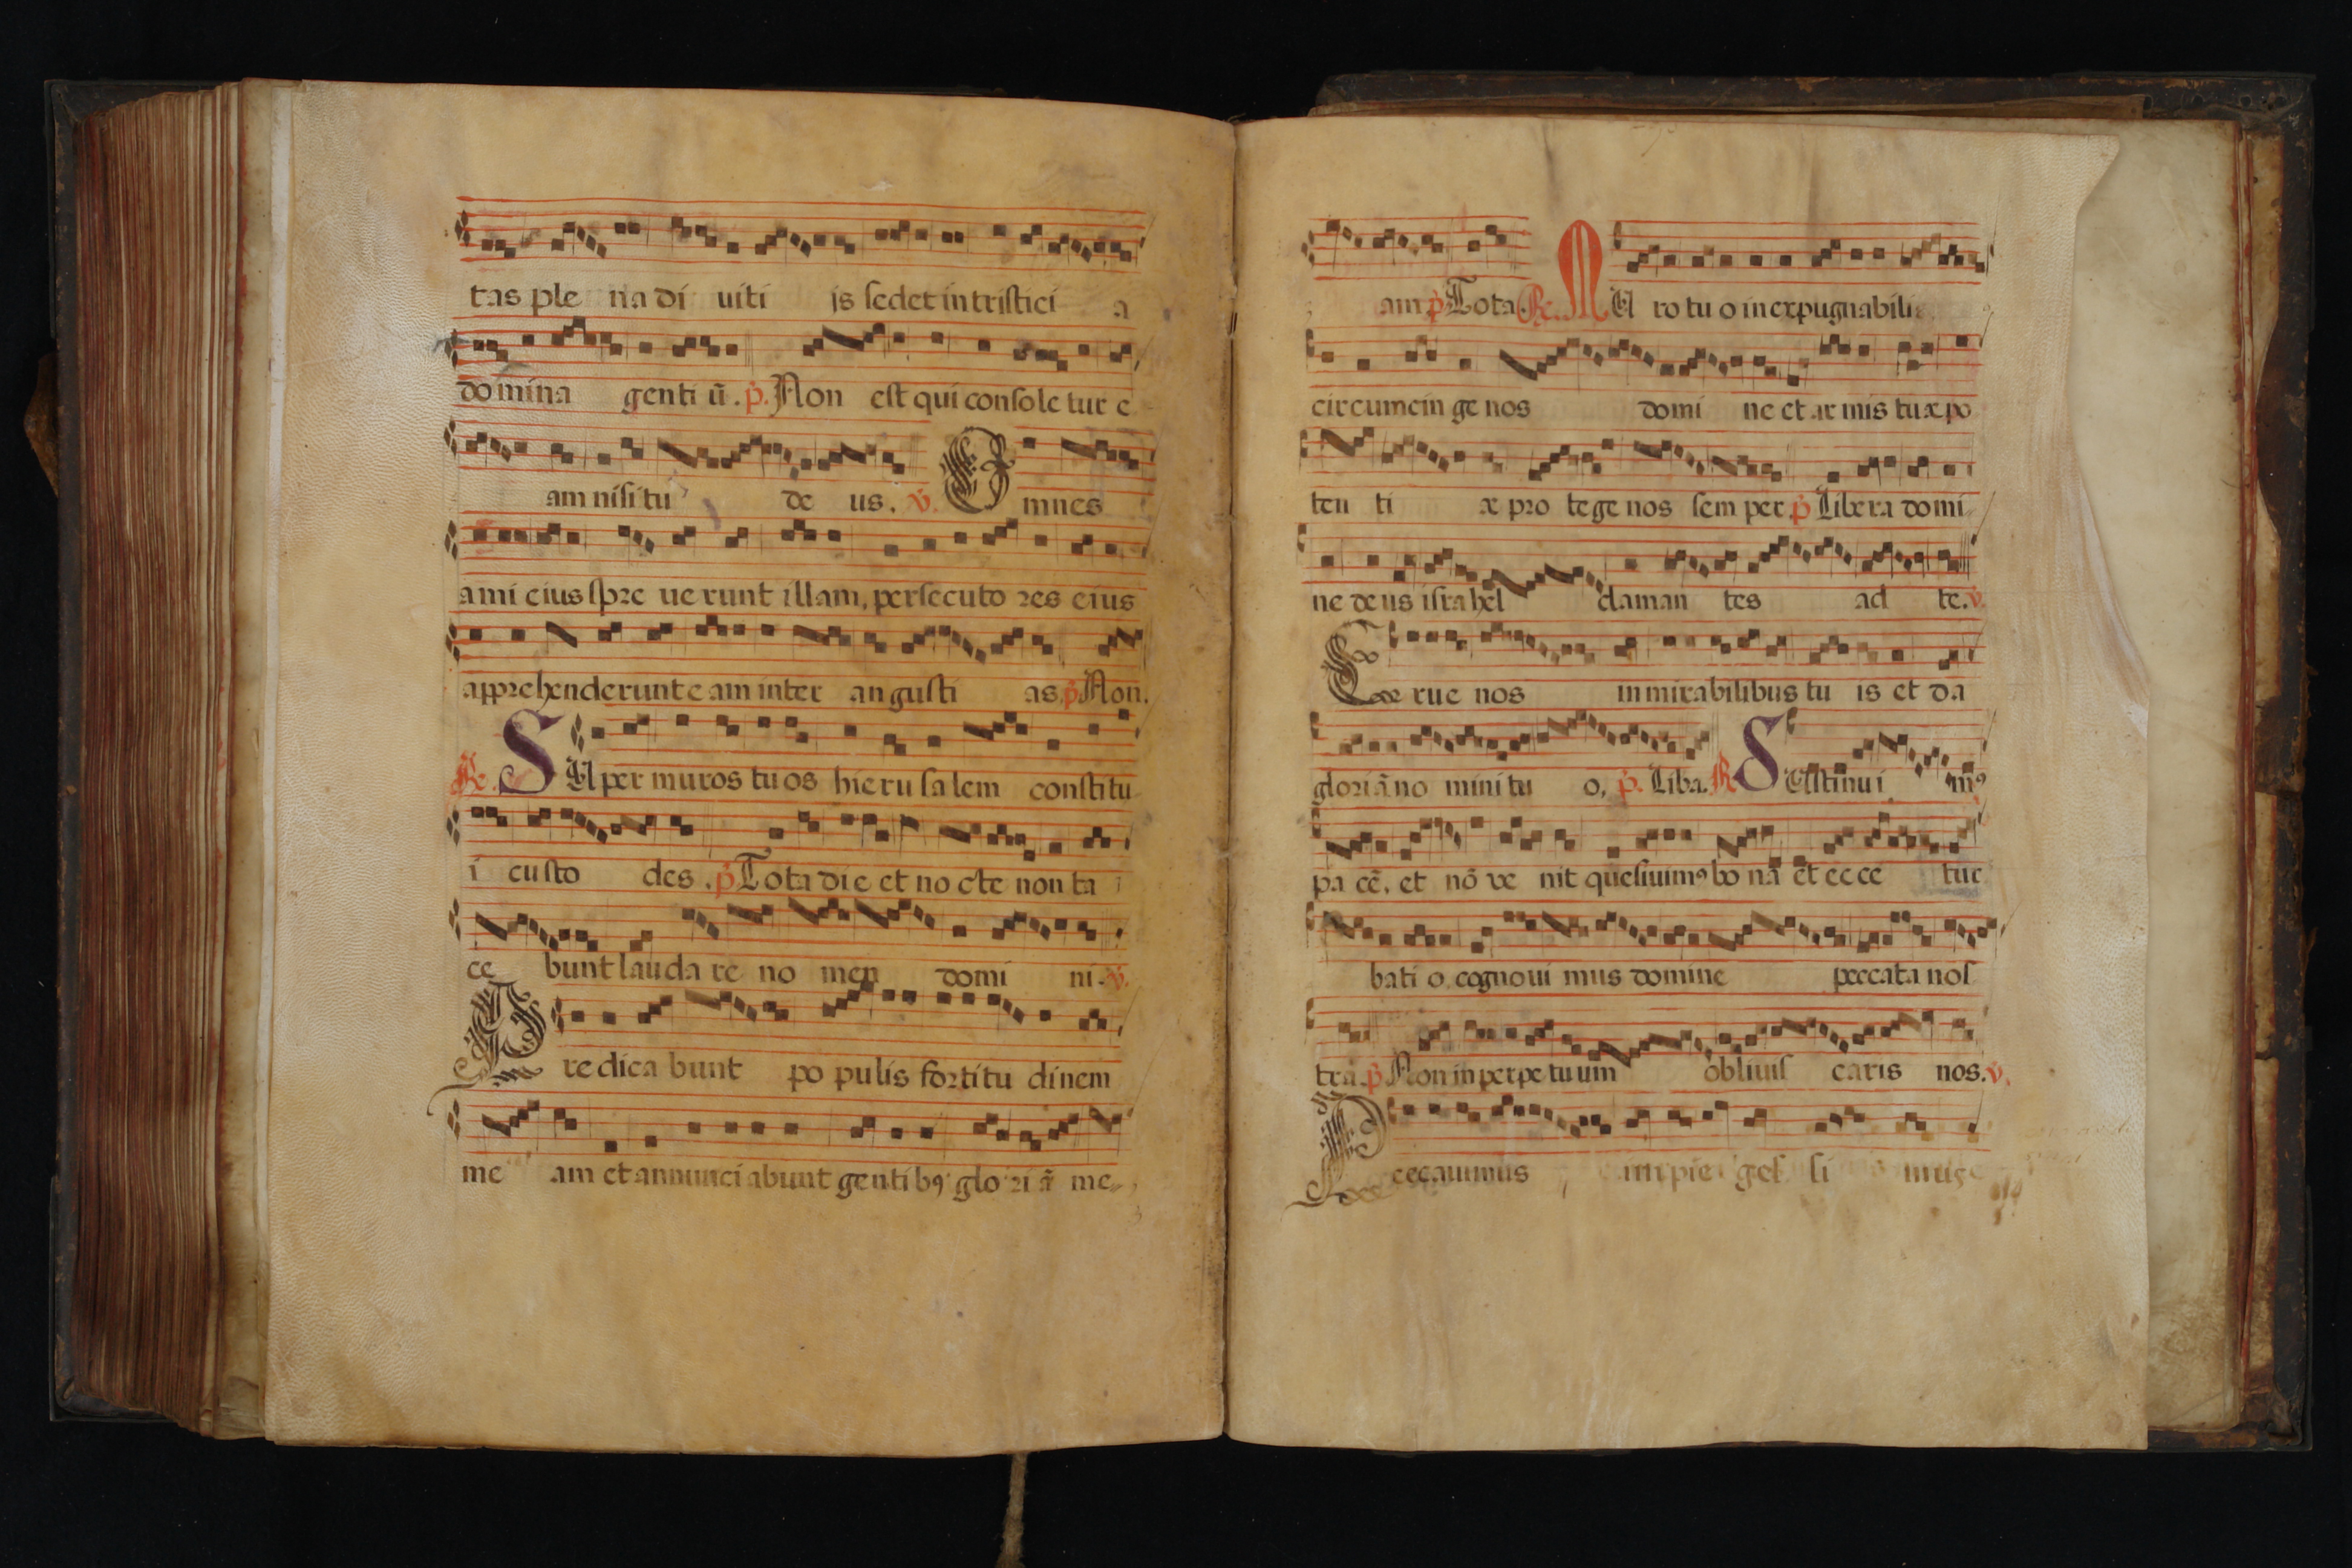 tas ple na di uiti js sedet in tristici a
domina genti ū. p. Non est qui consoletur e
am nisi tu de us. v. Omnes
ami eius spre uerunt illam, persecuto res eius
apprehenderunt eam inter angusti as. p Non.
R. SUper muros tuos hierusalem constitu
i custo des. p Tota die et nocte non ta
ce bunt laudare no men domi ni. v.
Predica bunt populis fortitu dinem
me am et annunciabunt gentibꝯ glo ri ā me
am. p Tota. R. MU ro tuo inexpugnabili
circumcin ge nos domi ne et ar mis tuæ po
ten ti æ pro tege nos sem per. p Libera domi
ne deus israhel claman tes ad te. v.
Erue nos in mirabilibus tu is et da
gloriā no mini tu o, p. Liba. R SUstinui mꝯ
pa cē, et nō ve nit quesiuimꝯ bo nā et ecce tur
bati o, cognoui mus domine peccata nos
tra. p Non in perpetuum obliuis caris nos. v.
Peccauimus impie ges si mus